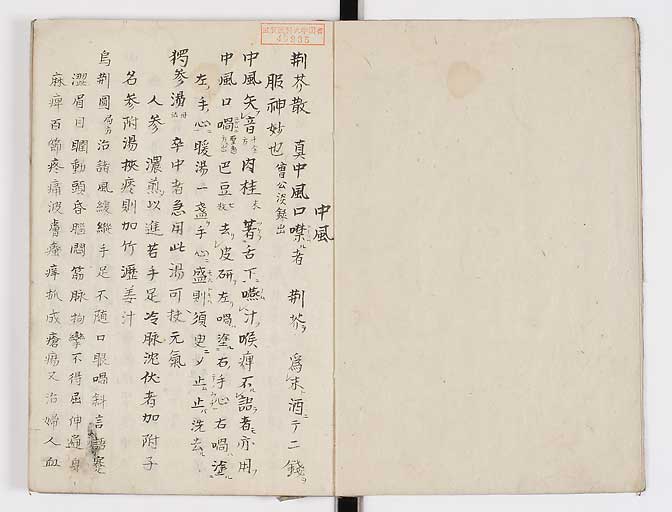 中風
荆芥散　真中風口噤者　荆芥　爲末酒テ二錢
服神妙也　曾公談録出
中風失音　肉桂　末　著舌下嚥汁喉痺不語者亦用
中風口喎　巴豆　七枚　去皮研左喎塗右手心右喎塗
左手心暖湯一盞手心盛則須臾ノ止止洗去
獨參湯　卒中者急用此湯可扶元氣
人參　濃煎以進若手足冷脉沈伏者加附子
名參附湯挾痰則加竹瀝姜汁
烏荆圓　局方　治諸風緩縱手足不随口眼喎斜言語蹇
澀眉目瞤動頭昏腦悶筋脉拘攣不得屈伸遍身
麻痺百節疼痛皮膚瘙痒抓成瘡瘍又治婦人血